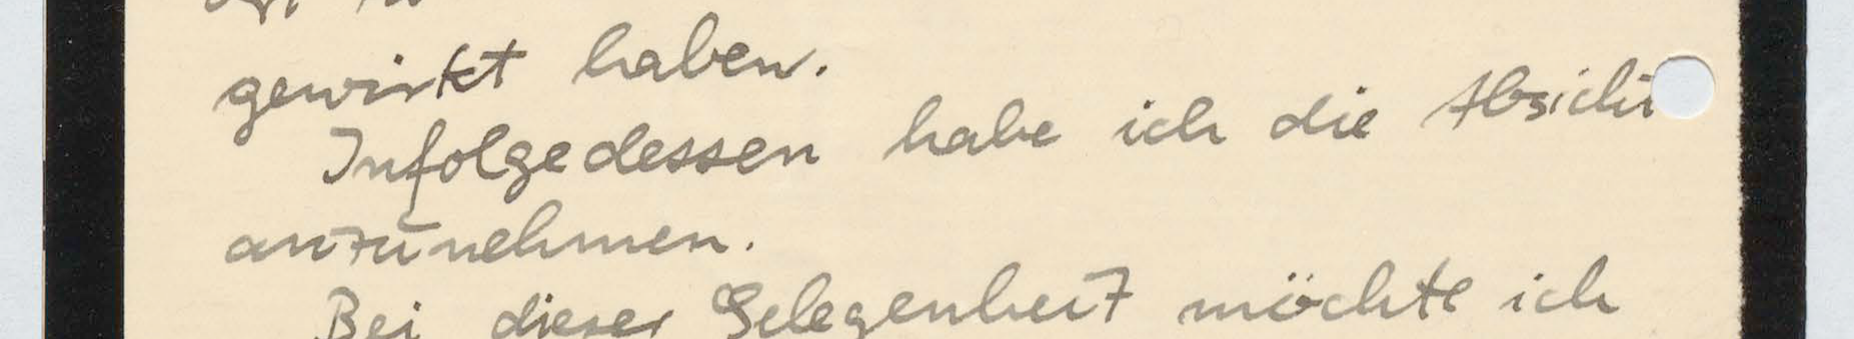 gewirkt haben.
Infolgedessen habe ich die Absicht
anzunehmen.
Bei dieser Gelegenheit möchte ich